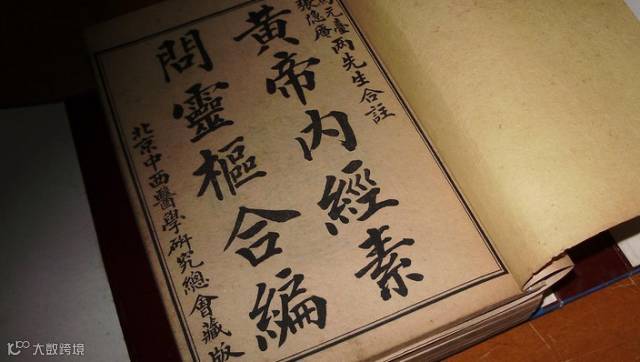 元臺
張隱庵
两先生合註
黃帝內經素
問靈樞合編
北京中西醫學研究總會藏版
大数跨境